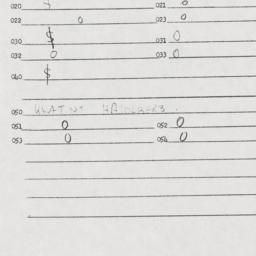 020 $ 021 0
022 0 023 0
030 $ 031 0
032 0 033 0
040 $
050
051 0 052 0
053 0 054 0